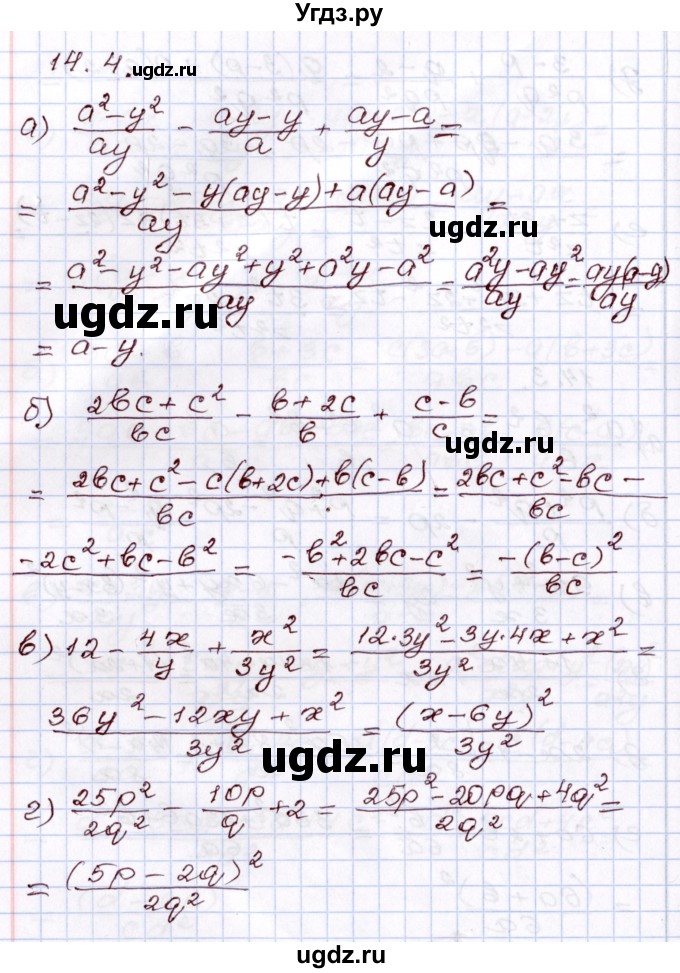 Угдз.ру
14.4. ugdz.ru
а) (a²-y²)/(ay) - (ay-y)/a + (ay-a)/y =
= (a²-y²-y(ay-y)+a(ay-a))/(ay) =
ugdz.ru
= (a²-y²-ay²+y²+a²y-a²)/(ay) = (a²y-ay²)/(ay) = (ay(a-y))/(ay)
ugdz.ru ugdz.ru
= a-y.
б) (2bc+c²)/(bc) - (b+2c)/b + (c-b)/c =
ugdz.ru
= (2bc+c²-c(b+2c)+b(c-b))/(bc) = (2bc+c²-bc-)/(bc)
(-2c²+bc-b²) = (-b²+2bc-c²)/(bc) = (-(b-c)²)/(bc)
в) 12 - (4x)/y + x²/(3y²) = (12·3y²-3y·4x+x²)/(3y²) =
(36y²-12xy+x²)/(3y²) = ((x-6y)²)/(3y²)
ugdz.ru
г) (25p²)/(2q²) - (10p)/q + 2 = (25p²-20pq+4q²)/(2q²) =
= ((5p-2q)²)/(2q²)
ugdz.ru